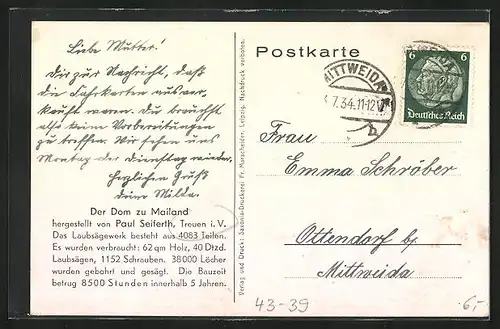 Liebe Mutter!
Dir zur Nachricht, daß
die Fahrkarten ausver-
kauft waren. Du brauchst
also keine Vorbereitungen
zu treffen. Wir sehen uns
Montag oder Dienstag wieder.
Herzlichen Gruß
deine Milda.
Der Dom zu Mailand
hergestellt von Paul Seiferth, Treuen i. V.
Das Laubsägewerk besteht aus 4083 Teilen.
Es wurden verbraucht: 62 qm Holz, 40 Dtzd.
Laubsägen, 1152 Schrauben. 38000 Löcher
wurden gebohrt und gesägt. Die Bauzeit
betrug 8500 Stunden innerhalb 5 Jahren.
Verlag und Druck: Saxonia-Druckerei Fr. Marscheider, Leipzig. Nachdruck verboten.
Postkarte
MITTWEIDA
7.34.11-12
b
6 6
Deutsches Reich
Frau
Emma Schröber
Ottendorf b/
Mittweida
43-39
6,-